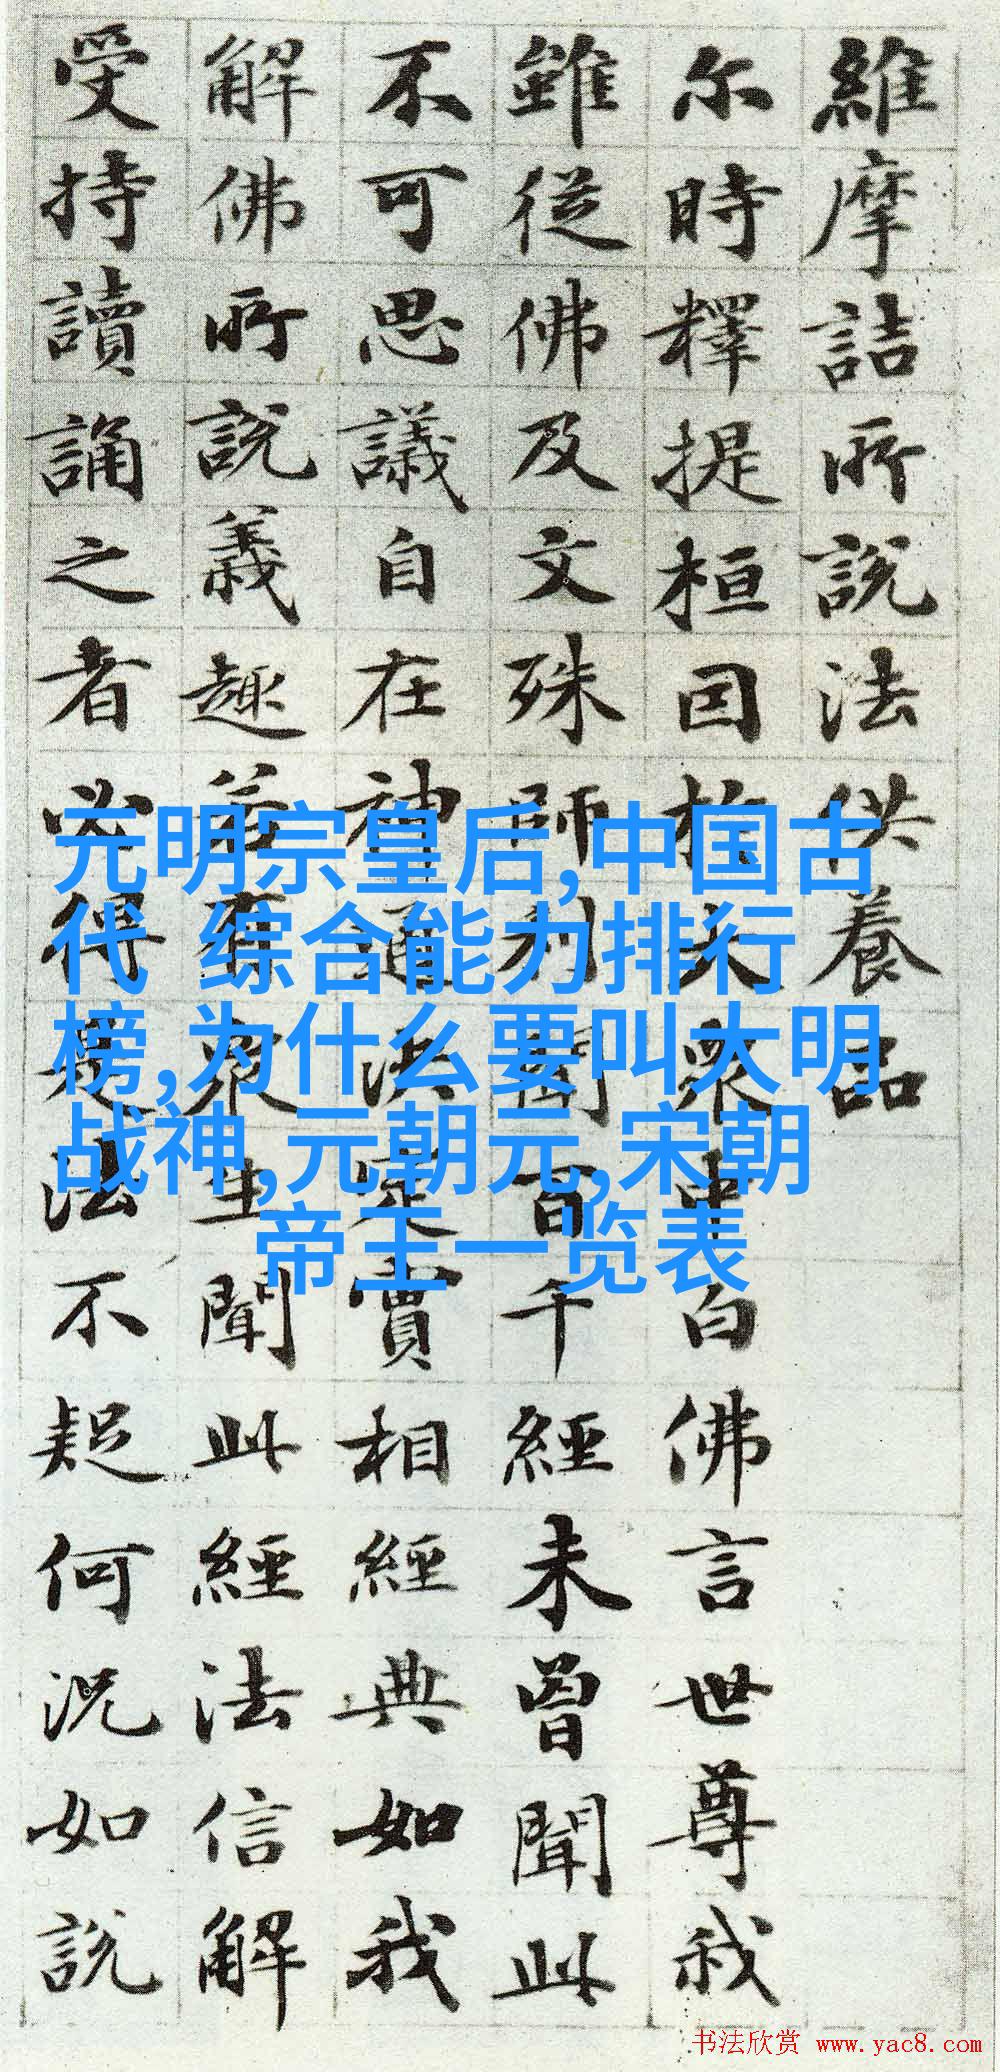 維摩詰所說法供養品
尔時釋提桓因於大衆中白佛言世尊我
雖從佛及文殊師利聞百千經未曾聞此
不可思議自在神通決定實相經典如我
解佛所說義趣若有衆生聞此經法信解
受持讀誦之者必得是法不疑何況如說
元明宗皇后,中国古
代 综合能力排行
榜,为什么要叫大明
战神,元朝元,宋朝
帝王一览表
书法欣赏 www.yac8.com